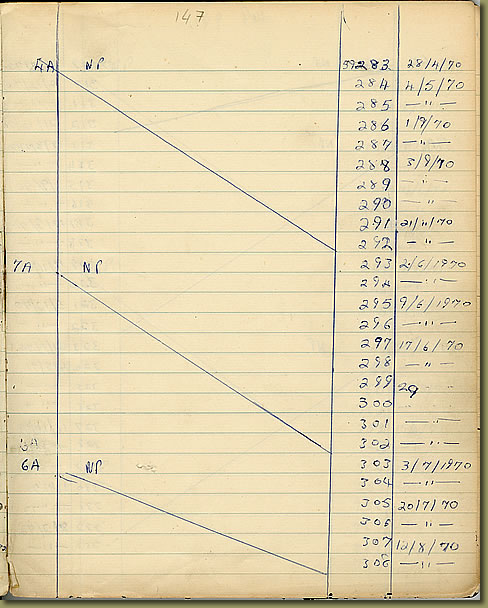 147
4A NP 59283 28/4/70
284 4/5/70
285 — " —
286 1/9/70
287 — " —
288 3/9/70
289 — " —
290 — " —
291 21/11/70
292 — " —
7A NP 293 2/6/1970
294 — " —
295 9/6/1970
296 — " —
297 17/6/70
298 — " —
299 29
300
301 — " —
302 — " —
6A NP 303 3/7/1970
304 — " —
305 20/7/70
306 — " —
307 12/8/70
308 — " —